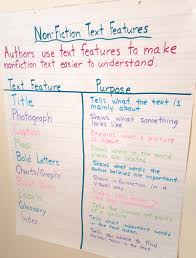 Non-Fiction Text Features
Authors use text features to make
nonfiction text easier to understand.
Text Feature Purpose
Title Tells what the text is mainly
about
Photograph Shows what something
looks like
Caption Explains what a picture
is about
Map
Bold Letters Shows what words the
author believes are important
Charts/Graphs Shows information in a
visual way
Glossary Tells what important words
in the text mean
Index Tells you where to find